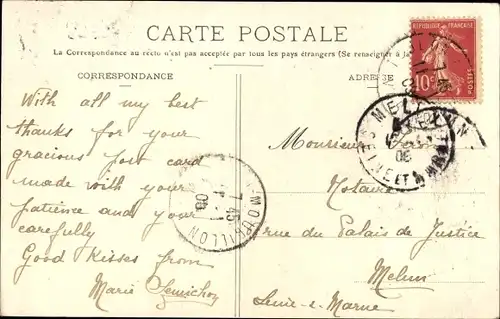 CARTE POSTALE
La Correspondance au recto n'est pas acceptée par tous les pays étrangers (Se renseigner à
CORRESPONDANCE
ADRESSE
RÉPUBLIQUE FRANÇAISE
10c
POSTES
With all my best
thanks for your
gracious post card
made with your
patience and your
carefully
Good kisses from
Marie
Monsieur
Notaire
rue du Palais de Justice
Melun
Seine-e-Marne
MELUN
SEINE ET MARNE
7 45
08